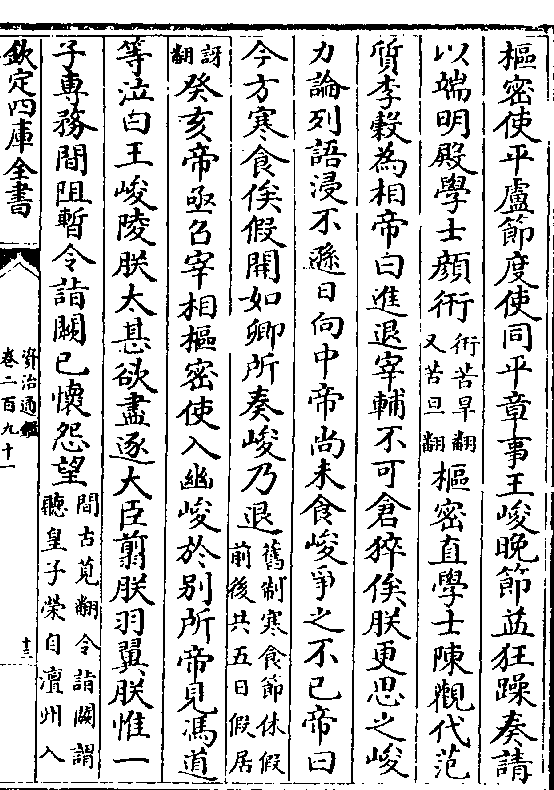 樞密使平盧節度使同平章事王峻晚節益狂躁奏請
以端明殿學士顔衎衎苦旱翻又苦旦翻樞密直學士陳觀代范
質李穀為相帝曰進退宰輔不可倉猝俟朕更思之峻
力論列語浸不遜日向中帝尚未食峻爭之不已帝曰
今方寒食俟假開如卿所奏峻乃退舊制寒食節休假前後共五日假居
訝翻癸亥帝亟召宰相樞密使入幽峻於别所帝見馮道
等泣曰王峻陵朕太甚欲盡逐大臣翦朕羽翼朕惟一
子専務間阻暫令詣闕已懷怨望間古莧翻令詣闕謂聽皇子榮自澶州入
欽定四庫全書
資治通鑑
卷二百九十一
十三